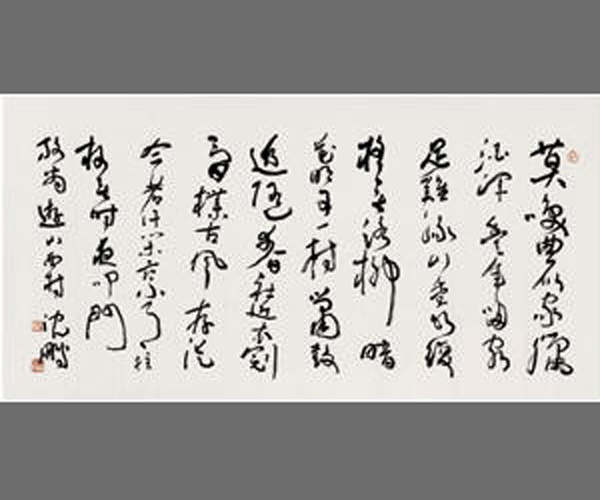 莫笑農家臘
酒渾豐年留客
足雞豚山重水複
疑無路柳暗
花明又一村簫鼓
追隨春社近衣冠
簡樸古風存從
今若許閑乘月拄
杖無時夜叩門
放翁遊山西村 沈鵬